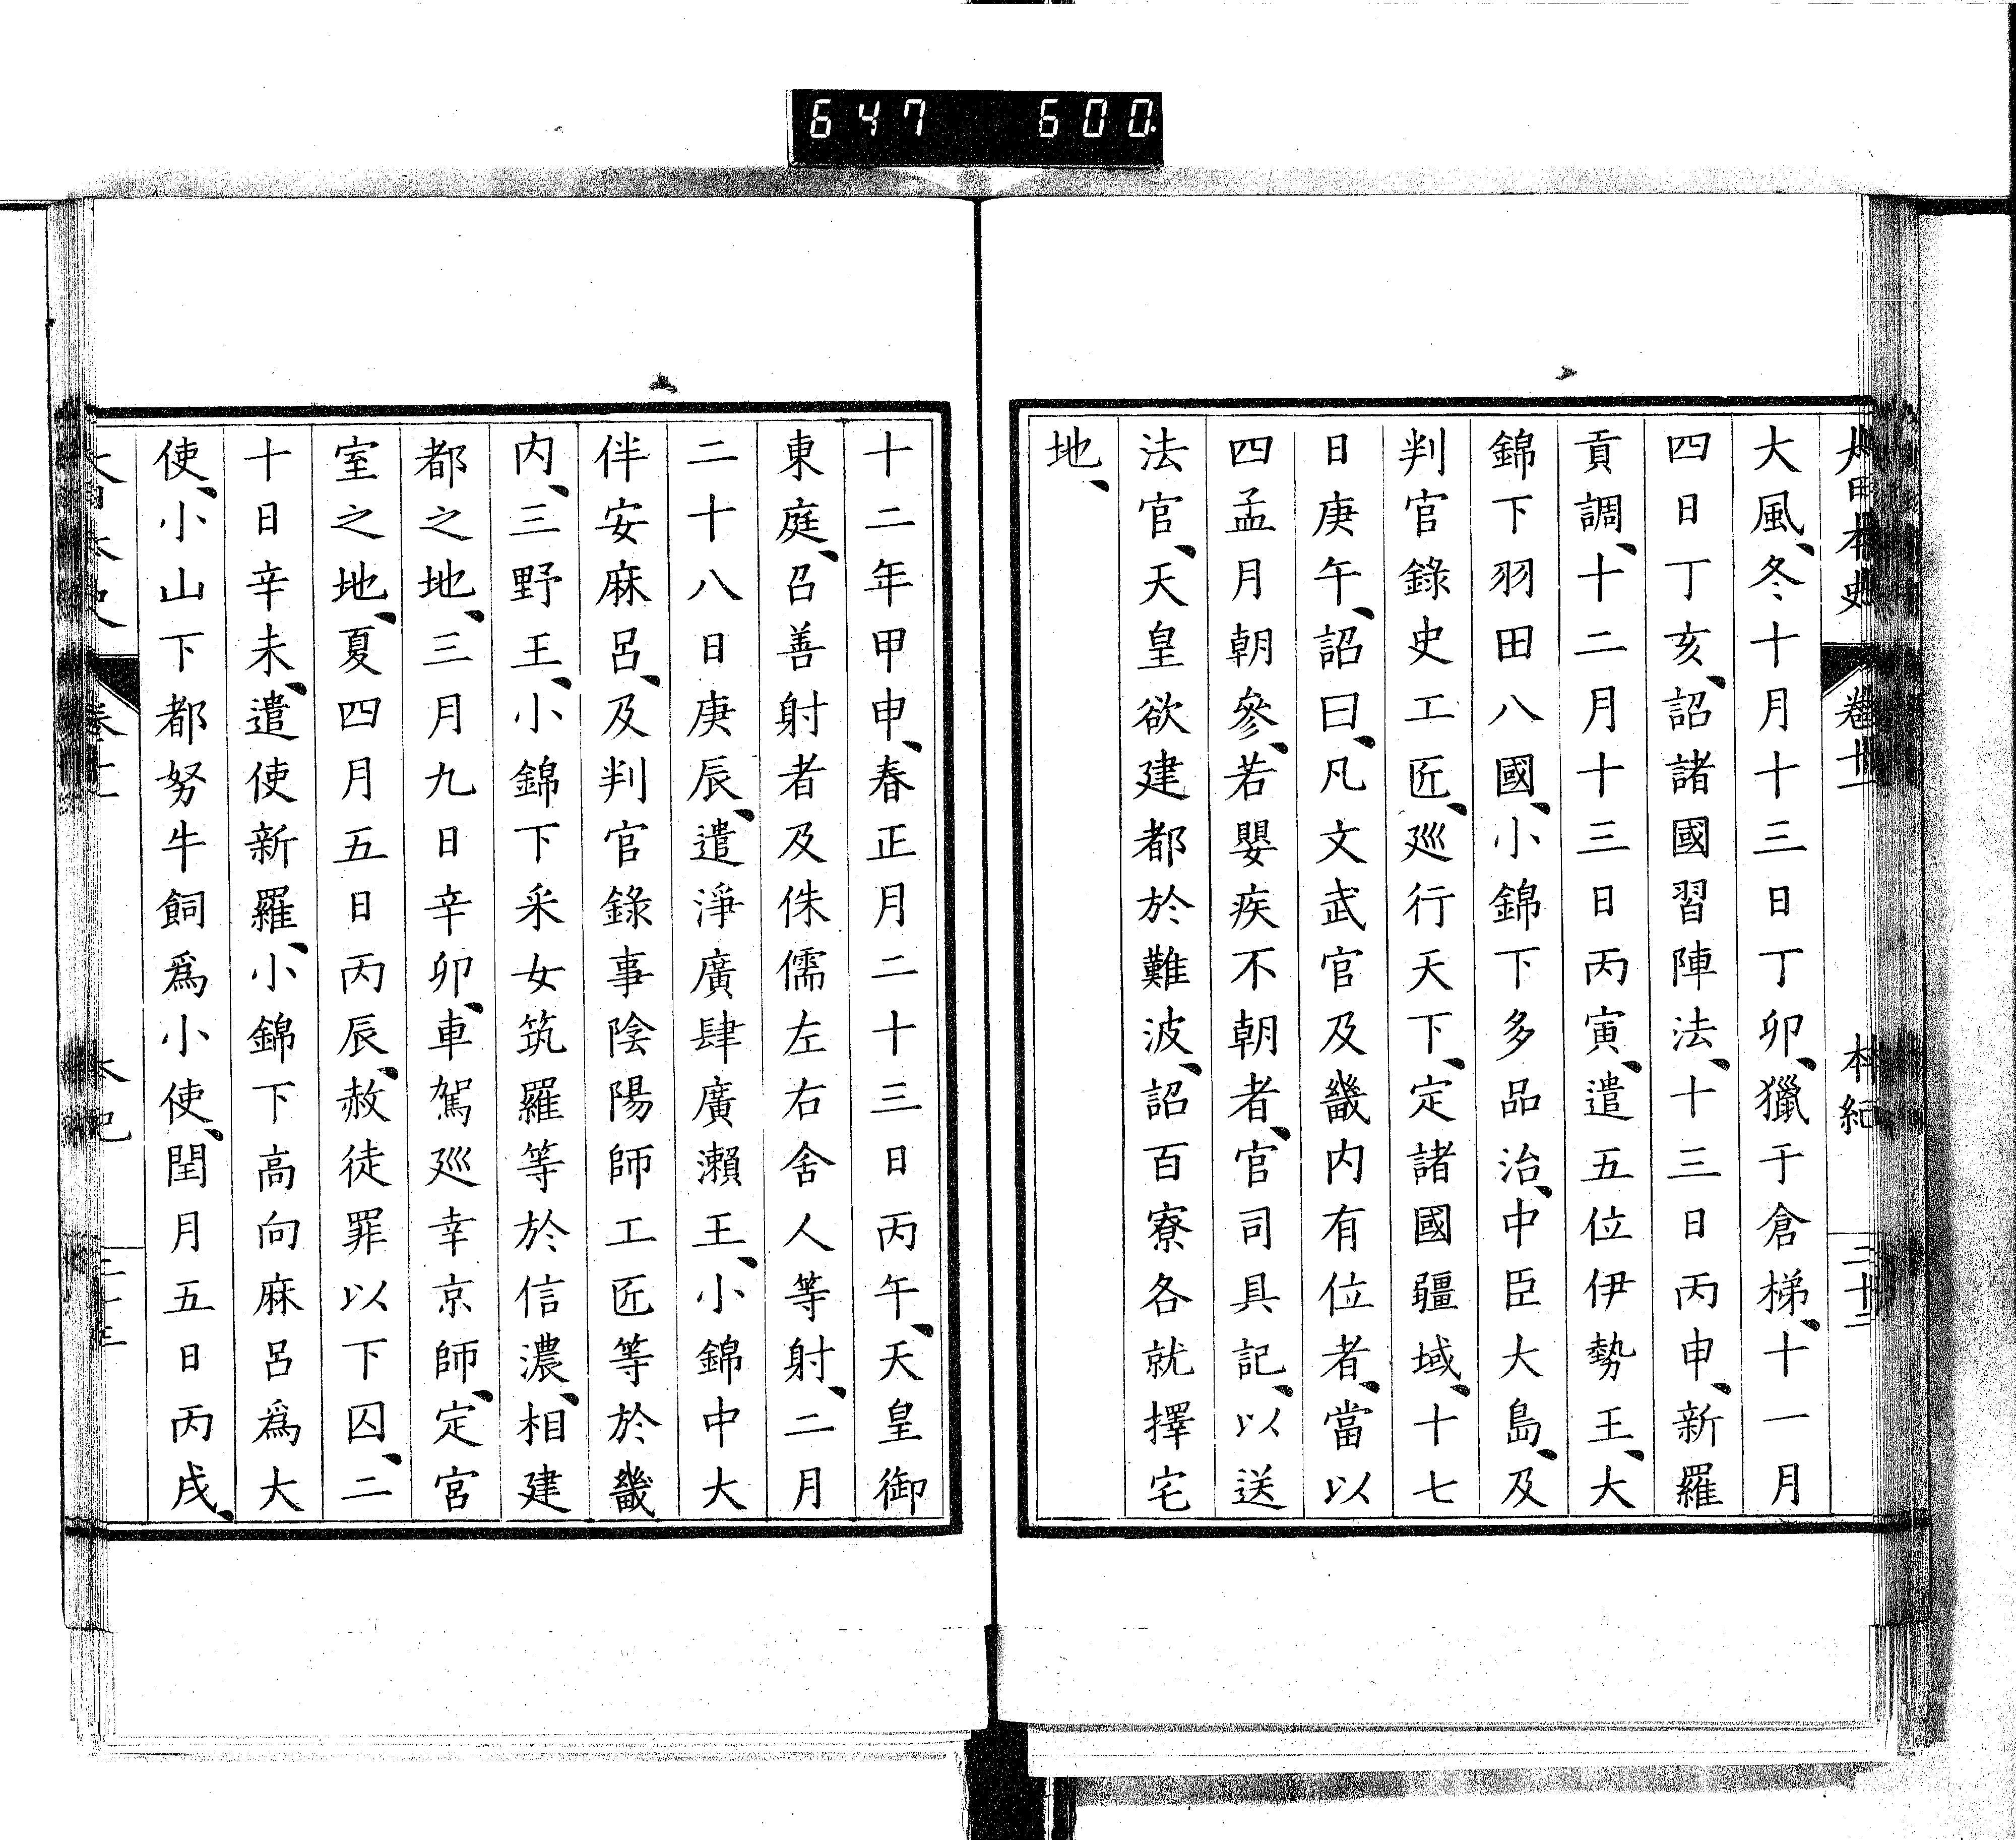 647 600
大日本史 卷十一 本紀 二十二
大風、冬十月十三日丁卯、獵于倉梯、十一月
四日丁亥、詔諸國習陣法、十三日丙申、新羅
貢調、十二月十三日丙寅、遣五位伊勢王、大
錦下羽田八國、小錦下多品治、中臣大島、及
判官錄史工匠、廵行天下、定諸國疆域、十七
日庚午、詔曰、凡文武官及畿內有位者、當以
四孟月朝參、若嬰疾不朝者、官司具記、以送
法官、天皇欲建都於難波、詔百寮各就擇宅
地、
十二年甲申、春正月二十三日丙午、天皇御
東庭、召善射者及侏儒左右舍人等射、二月
二十八日庚辰、遣淨廣肆廣瀨王、小錦中大
伴安麻呂、及判官錄事陰陽師工匠等於畿
內、三野王、小錦下采女筑羅等於信濃、相建
都之地、三月九日辛卯、車駕廵幸京師、定宮
室之地、夏四月五日丙辰、赦徒罪以下囚、二
十日辛未、遣使新羅、小錦下高向麻呂爲大
使、小山下都努牛飼爲小使、閏月五日丙戌、